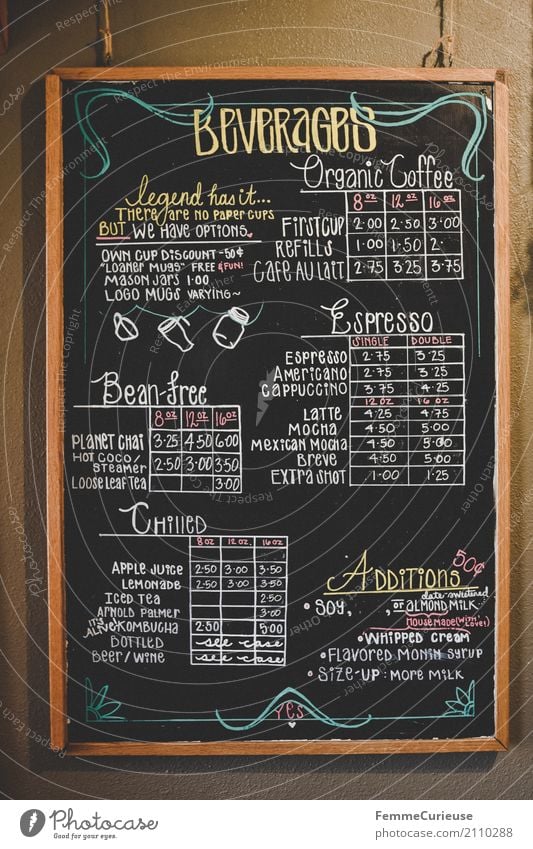 BEVERAGES
legend has it...
THERE ARE NO PAPER CUPS
BUT WE HAVE OPTIONS.
OWN CUP DISCOUNT -50¢
"LOANER MUGS" FREE & FUN!
MASON JARS 1.00
LOGO MUGS VARYING~
Organic Coffee
8oz 12oz 16oz
FIRST CUP 2.00 2.50 3.00
REFILLS 1.00 1.50 2.
CAFE AU LAIT 2.75 3.25 3.75
ESPRESSO
SINGLE DOUBLE
ESPRESSO 2.75 3.25
AMERICANO 2.75 3.25
CAPPUCCINO 3.75 4.25
12 oz 16 oz
LATTE 4.25 4.75
MOCHA 4.50 5.00
MEXICAN MOCHA 4.50 5.00
BREVE 4.50 5.00
EXTRA SHOT 1.00 1.25
Bean-free
8oz 12oz 16oz
PLANET CHAI 3.25 4.50 6.00
HOT COCO/
STEAMER 2.50 3.00 3.50
LOOSE LEAF TEA 3.00
CHILLED
8oz 12oz. 16oz
APPLE JUICE 2.50 3.00 3.50
LEMONADE 2.50 3.00 3.50
ICED TEA 2.50
ARNOLD PALMER 3.00
IT'S ALIVE KOMBUCHA 2.50 5.00
BOTTLED see case
BEER/WINE see case
ADDITIONS 50¢
date sweetened
• SOY, , or ALMOND MILK
HOUSE MADE (WITH Love!)
• WHIPPED CREAM
• FLAVORED MONIN SYRUP
• SIZE-UP: MORE MILK
YES
PHOTOCASE
Good for your eyes.
FemmeCurieuse
photocase.com/2110288